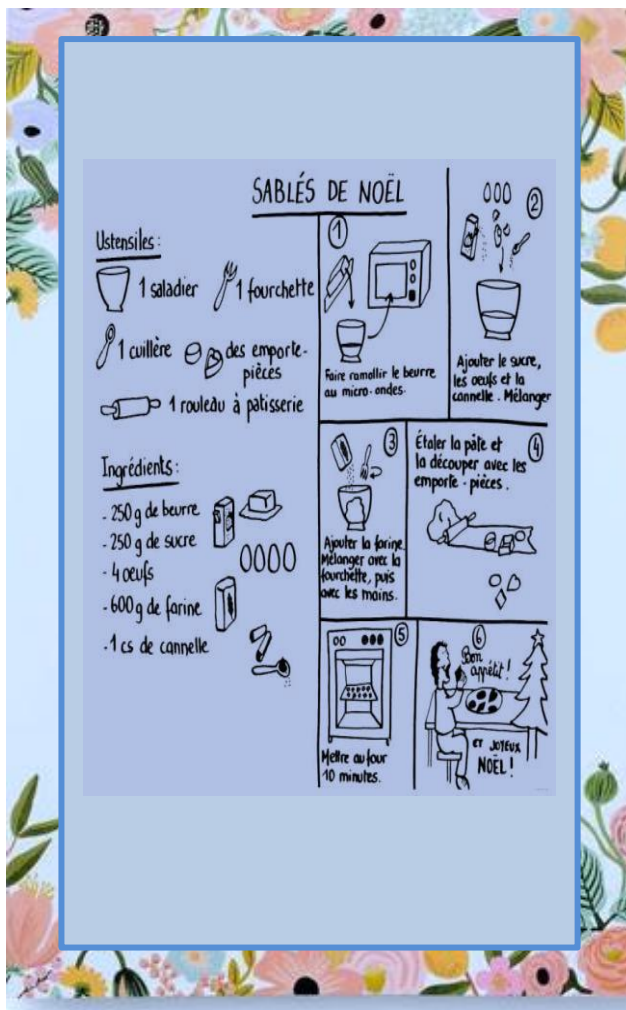 SABLÉS DE NOËL
Ustensiles :
1 saladier
1 fourchette
1 cuillère
des emporte-
pièces
1 rouleau à patisserie
Ingrédients :
- 250 g de beurre
- 250 g de sucre
- 4 oeufs
- 600 g de farine
- 1 cs de cannelle
1
Faire ramollir le beurre
au micro-ondes.
2
Ajouter le sucre,
les oeufs et la
cannelle. Mélanger
3
Ajouter la farine.
Mélanger avec la
fourchette, puis
avec les mains.
4
Étaler la pâte et
la découper avec les
emporte-pièces.
5
Mettre au four
10 minutes.
6
Bon
appétit !
ET JOYEUX
NOËL !